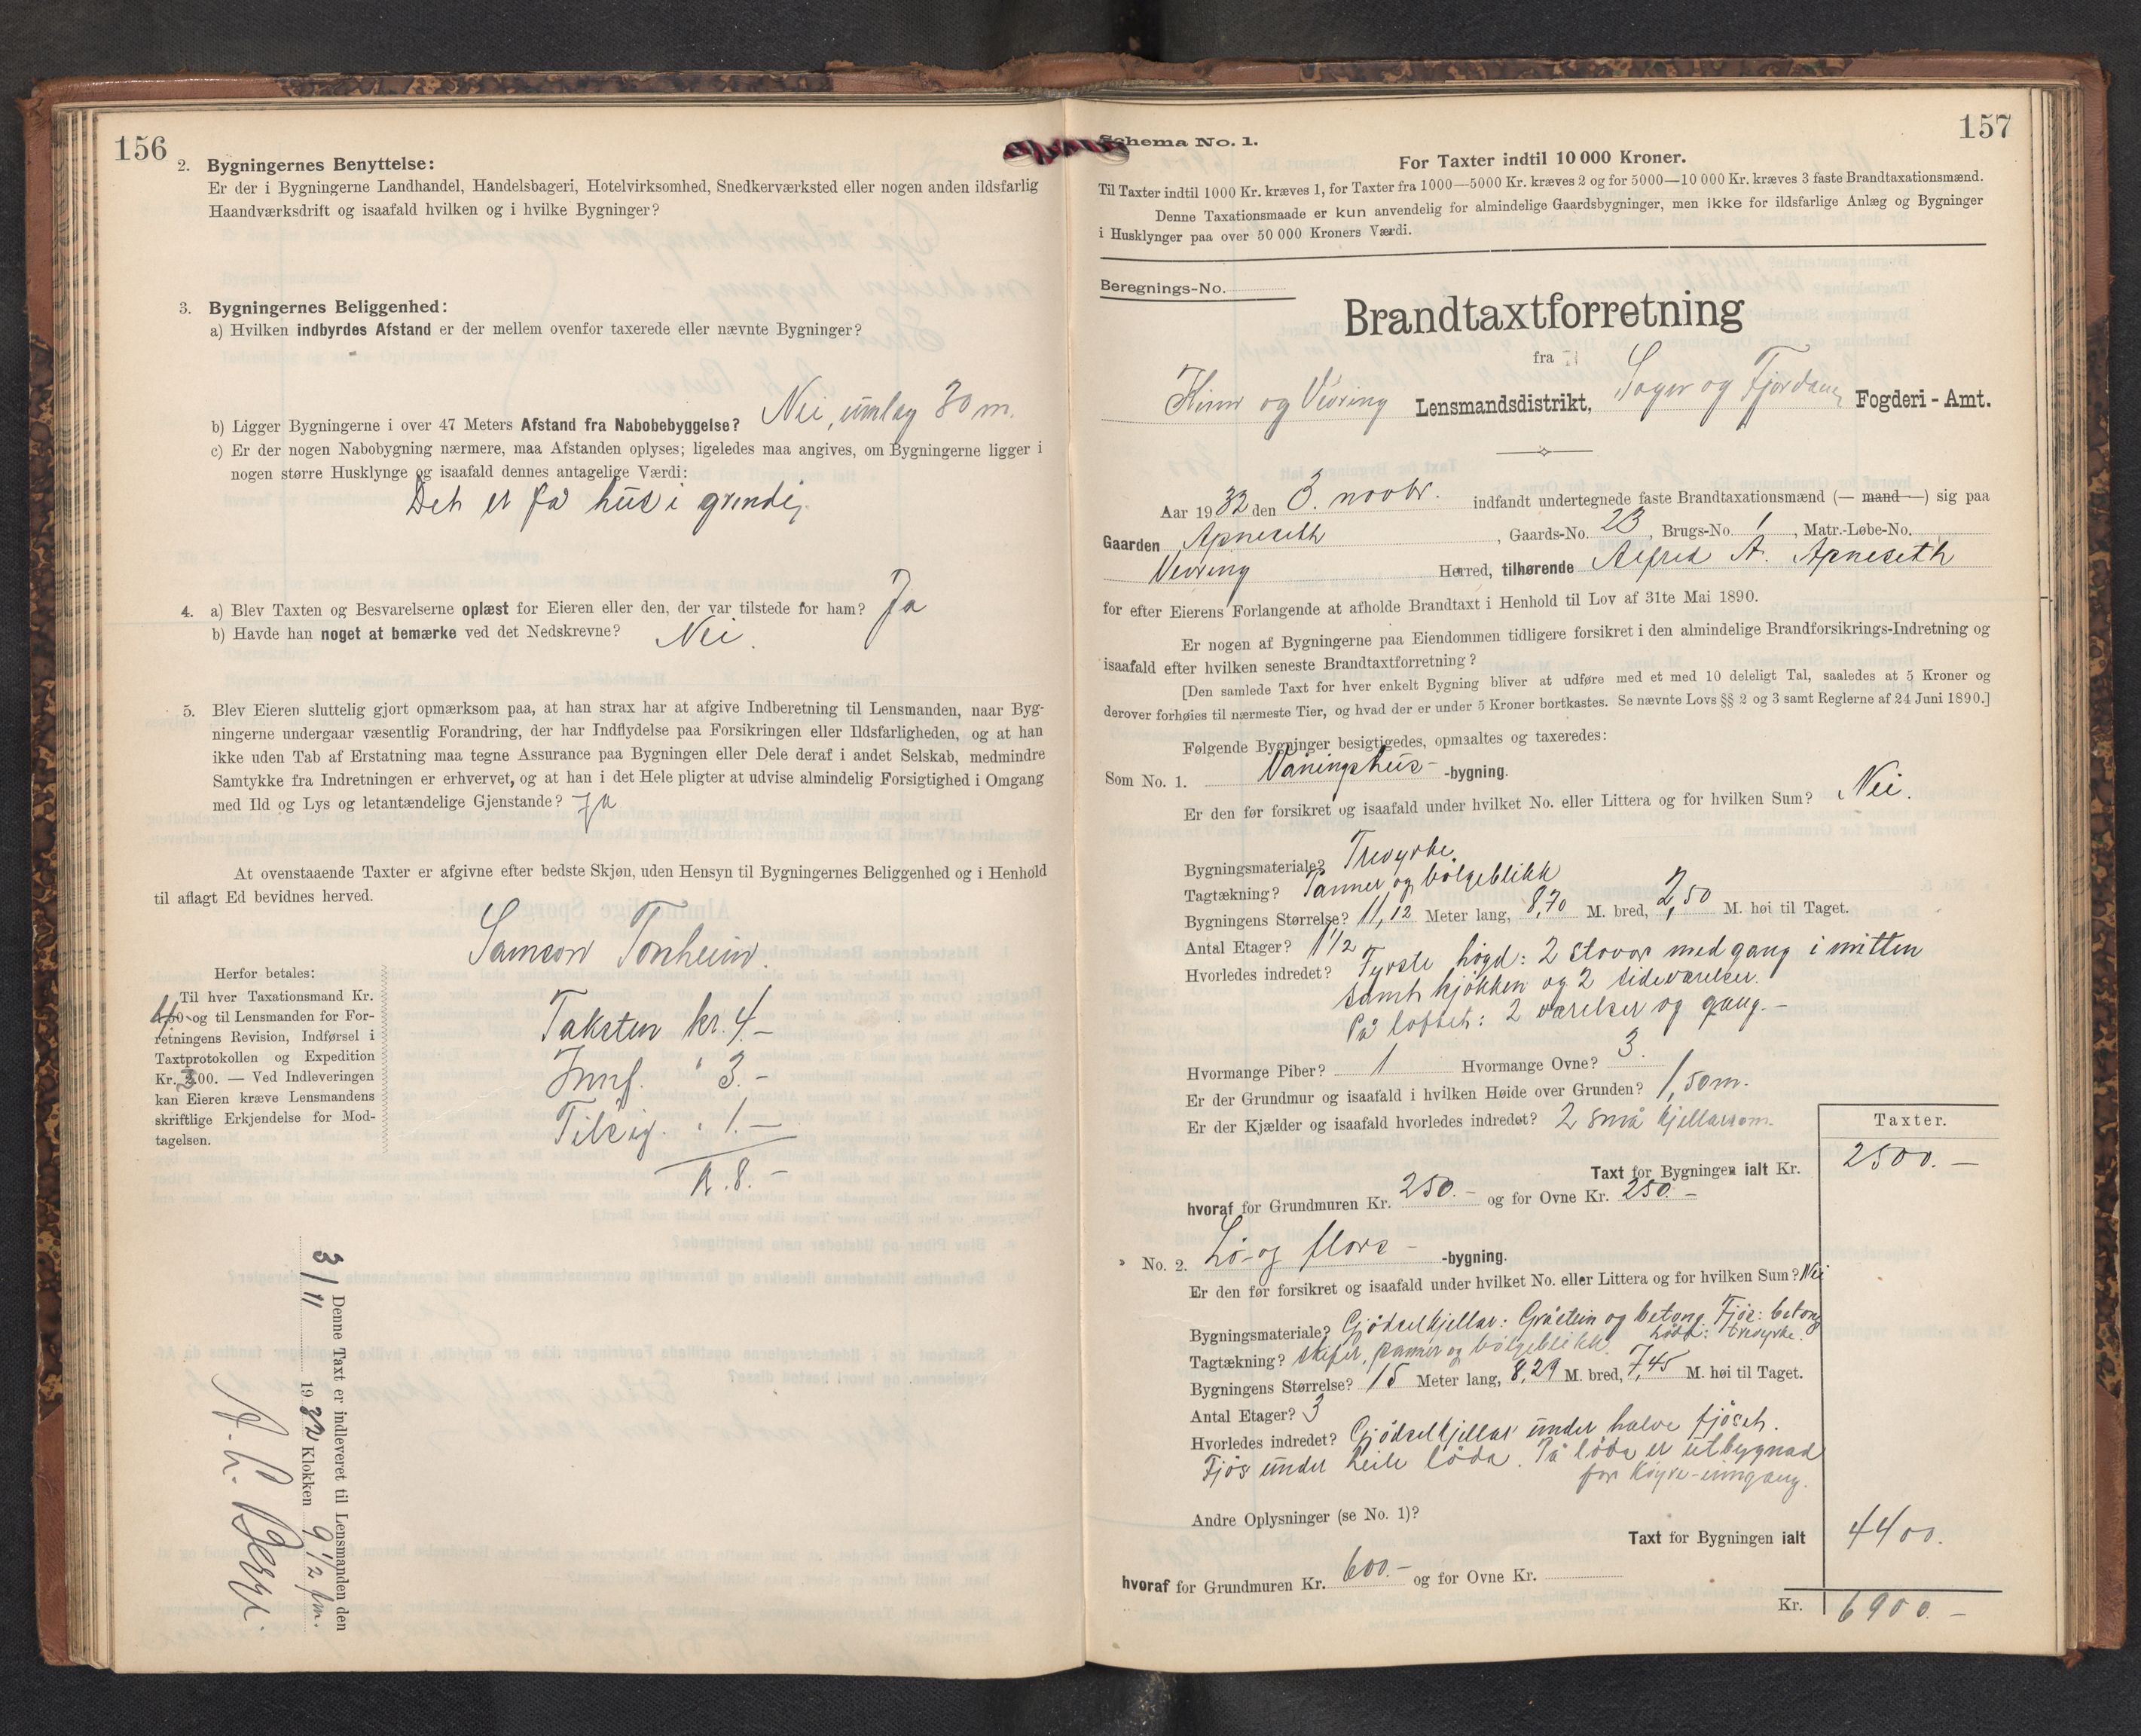 156
2. Bygningernes Benyttelse:
Er der i Bygningerne Landhandel, Handelsbageri, Hotelvirksomhed, Snedkerværksted eller nogen anden ildsfarlig
Haandværksdrift og isaafald hvilken og i hvilke Bygninger?
3. Bygningernes Beliggenhed:
a) Hvilken indbyrdes Afstand er der mellem ovenfor taxerede eller nævnte Bygninger?
b) Ligger Bygningerne i over 47 Meters Afstand fra Nabobebyggelse? Nei, umlag 30 m.
c) Er der nogen Nabobygning nærmere, maa Afstanden oplyses; ligeledes maa angives, om Bygningerne ligger i
nogen større Husklynge og isaafald dennes antagelige Værdi:
Det er få hus i grendi.
4. a) Blev Taxten og Besvarelserne oplæst for Eieren eller den, der var tilstede for ham? Ja
b) Havde han noget at bemærke ved det Nedskrevne? Nei.
5. Blev Eieren sluttelig gjort opmærksom paa, at han strax har at afgive Indberetning til Lensmanden, naar Byg-
ningerne undergaar væsentlig Forandring, der har Indflydelse paa Forsikringen eller Ildsfarligheden, og at han
ikke uden Tab af Erstatning maa tegne Assurance paa Bygningen eller Dele deraf i andet Selskab, medmindre
Samtykke fra Indretningen er erhvervet, og at han i det Hele pligter at udvise almindelig Forsigtighed i Omgang
med Ild og Lys og letantændelige Gjenstande? Ja
At ovenstaaende Taxter er afgivne efter bedste Skjøn, uden Hensyn til Bygningernes Beliggenhed og i Henhold
til aflagt Ed bevidnes herved.
Samson Tonheim.
Herfor betales:
Til hver Taxationsmand Kr.
4,00 og til Lensmanden for For-
retningens Revision, Indførsel i
Taxtprotokollen og Expedition
Kr. 3.00. — Ved Indleveringen
kan Eieren kræve Lensmandens
skriftlige Erkjendelse for Mod-
tagelsen.
Taksten kr. 4.-
Innf. " 3.-
Tilsig. " 1.-
Kr. 8.-
Denne Taxt er indleveret til Lensmanden den
3/11 1932 Klokken 9 1/2 fm.
157
Schema No. 1.
For Taxter indtil 10 000 Kroner.
Til Taxter indtil 1000 Kr. kræves 1, for Taxter fra 1000—5000 Kr. kræves 2 og for 5000—10 000 Kr. kræves 3 faste Brandtaxationsmænd.
Denne Taxationsmaade er kun anvendelig for almindelige Gaardsbygninger, men ikke for ildsfarlige Anlæg og Bygninger
i Husklynger paa over 50 000 Kroners Værdi.
Beregnings-No.
Brandtaxtforretning
fra
Kinn og Vevring Lensmandsdistrikt, Sogn og Fjordane Fogderi - Amt.
Aar 1932 den 3. novbr. indfandt undertegnede faste Brandtaxationsmænd (— mand —) sig paa
Gaarden Apneseth, Gaards-No. 23, Brugs-No. 1, Matr.-Løbe-No.
Vevring Herred, tilhørende Alfred A. Apneseth
for efter Eierens Forlangende at afholde Brandtaxt i Henhold til Lov af 31te Mai 1890.
Er nogen af Bygningerne paa Eiendommen tidligere forsikret i den almindelige Brandforsikrings-Indretning og
isaafald efter hvilken seneste Brandtaxtforretning?
[Den samlede Taxt for hver enkelt Bygning bliver at udføre med et med 10 deleligt Tal, saaledes at 5 Kroner og
derover forhøies til nærmeste Tier, og hvad der er under 5 Kroner bortkastes. Se nævnte Lovs §§ 2 og 3 samt Reglerne af 24 Juni 1890.]
Følgende Bygninger besigtigedes, opmaaltes og taxeredes:
Som No. 1. Våningshus- -bygning.
Er den før forsikret og isaafald under hvilket No. eller Littera og for hvilken Sum? Nei.
Bygningsmateriale? Trevyrke.
Tagtækning? Panner og bølgeblikk
Bygningens Størrelse? 11,12 Meter lang, 8,70 M. bred, 2,50 M. høi til Taget.
Antal Etager? 1 1/2
Hvorledes indredet? Fyrste høgd: 2 stovor med gang i mitten
samt kjøkken og 2 sideværelser.
På loftet: 2 værelser og gang.-
Hvormange Piber? 1 Hvormange Ovne? 3.
Er der Grundmur og isaafald i hvilken Høide over Grunden? 1,50 m.
Er der Kjælder og isaafald hvorledes indredet? 2 små kjellarrom.
Taxter.
Taxt for Bygningen ialt Kr. 2500.-
hvoraf for Grundmuren Kr. 250.- og for Ovne Kr. 250.-
No. 2. Lø- og flors- -bygning.
Er den før forsikret og isaafald under hvilket No. eller Littera og for hvilken Sum? Nei
Bygningsmateriale? Gjødselkjellar: Gråstein og betong. Fjøs: betong
Løda: trevyrke.
Tagtækning? skifer, panner og bølgeblikk.
Bygningens Størrelse? 15 Meter lang, 8,29 M. bred, 7,45 M. høi til Taget.
Antal Etager? 3
Hvorledes indredet? Gjødselkjellar under halve fjøset.
Fjøs under heile løda. På løda er utbygnad
for køyre-inngang.
Andre Oplysninger (se No. 1)?
Taxt for Bygningen ialt 4400.
hvoraf for Grundmuren Kr. 600.- og for Ovne Kr.
Kr. 6900.-